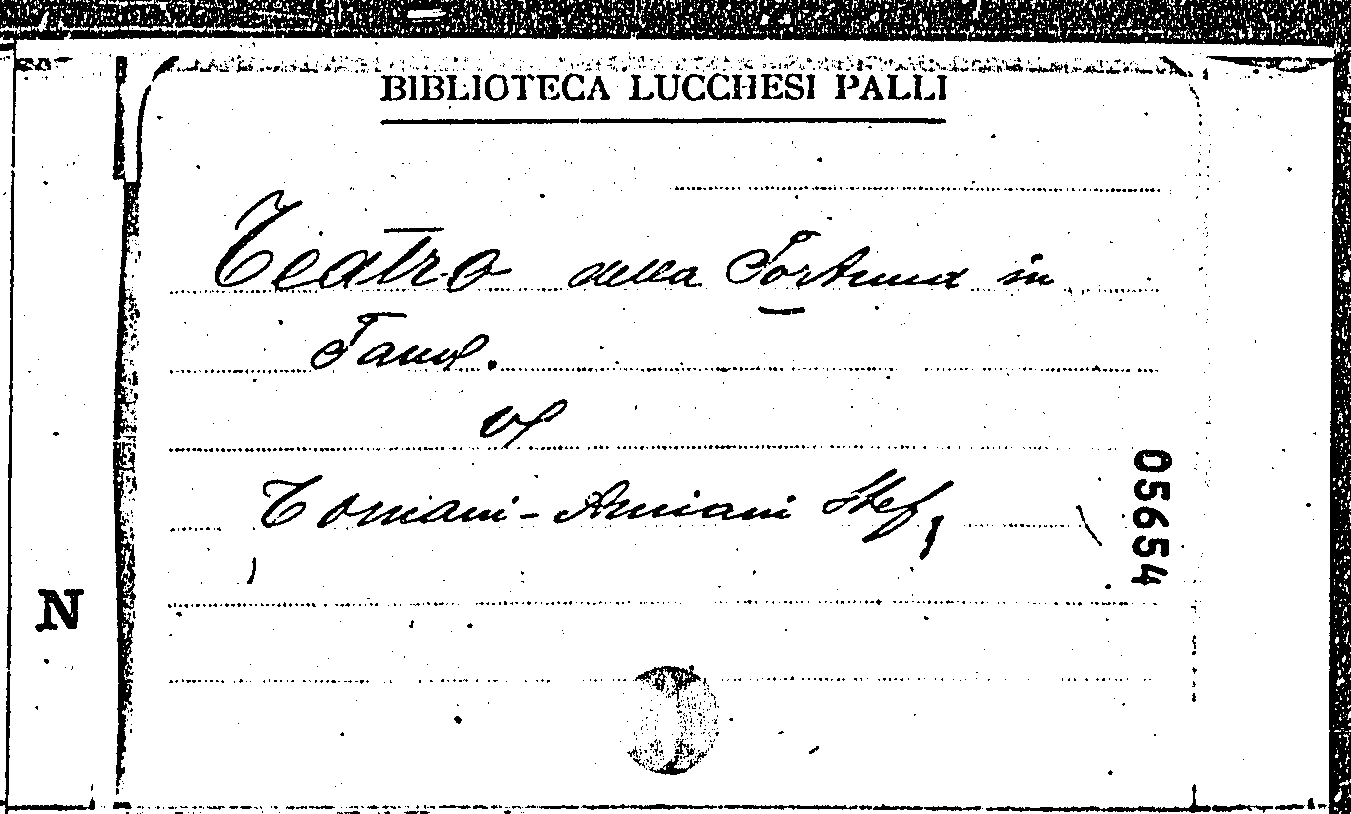 BIBLIOTECA LUCCHESI PALLI
Teatro della Fortuna in
Fano.
v
Tomani-Amiani Stef,
05654
N